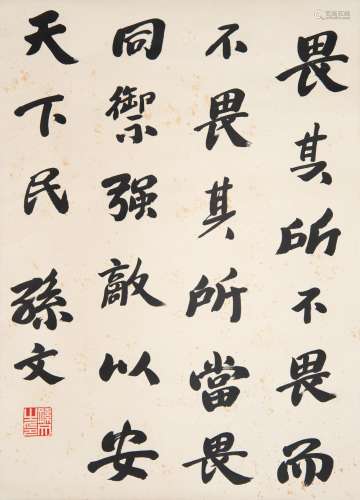 畏其所不畏而
不畏其所當畏
同禦强敵以安
天下民 孫文
孫文之印